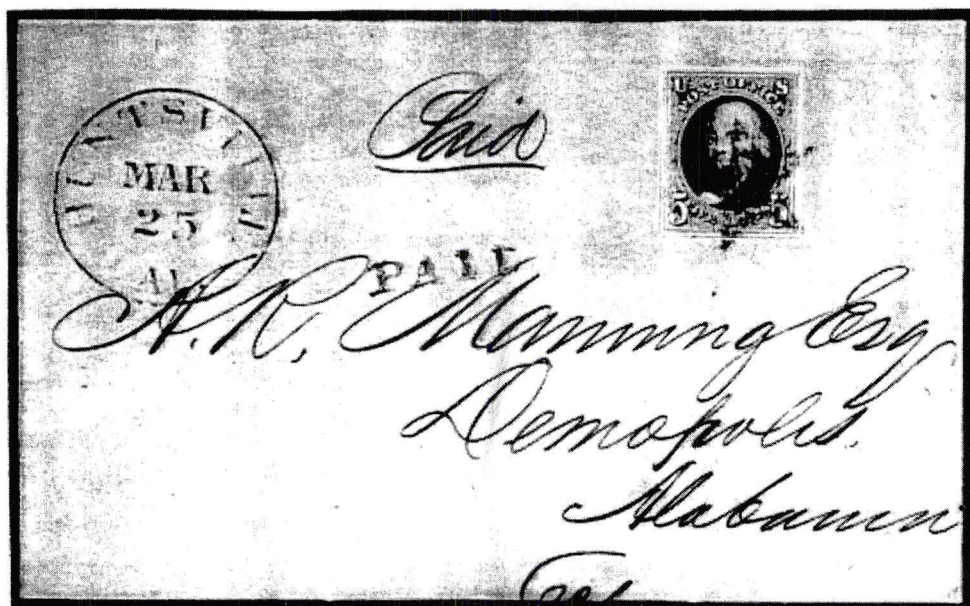 HUNTSVILLE
MAR
25
AL
Paid
U S
POST OFFICE
5 5
PAID
A. R. Manning Esq
Demopolis.
Alabama